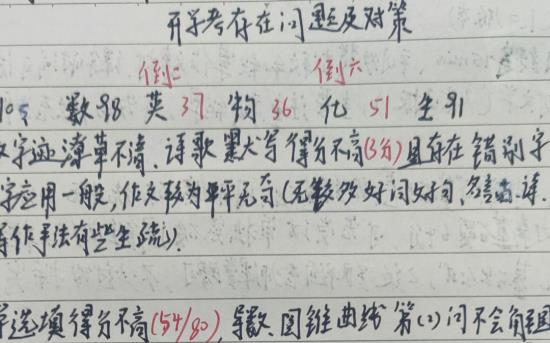 开学考存在问题及对策
倒二 倒六
105 数98 英37 物36 化51 生91
文字迹潦草不清、诗歌默写得分不高(3分)且存在错别字
字应用一般,作文较为平平无奇(无较多好词好句、名言、诗.
写作手法有些生疏).
选项得分不高(54/80),导数、圆锥曲线第(2)问不会